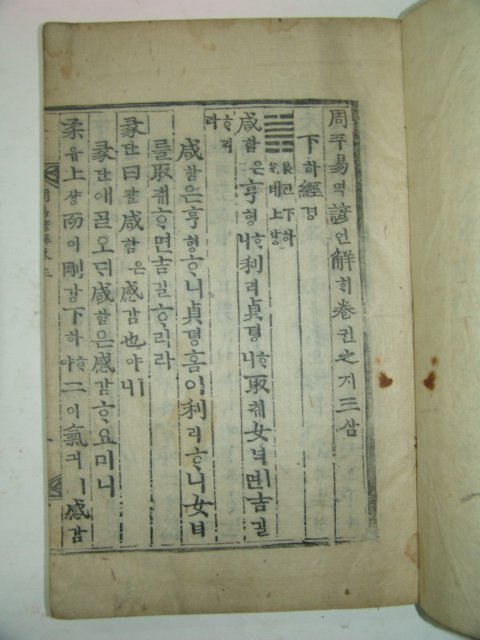 周쥬易역諺언解ᄒᆡ卷권之지三삼
下하經경
䷞ 艮간下하兌태上샹
咸함은亨형ᄒᆞ니利리貞뎡ᄒᆞ니取췌女녀면吉길
ᄒᆞ리라
咸함은亨형ᄒᆞ니貞뎡홈이利리ᄒᆞ니女녀
를取췌ᄒᆞ면吉길ᄒᆞ리라
彖단曰왈咸함은感감也야ㅣ니
彖단애ᄀᆞᆯ오ᄃᆡ咸함은感감ᄒᆞ요미니
柔유上샹而이剛강下하ᄒᆞ야二이氣긔ㅣ感감
周易諺解卷三